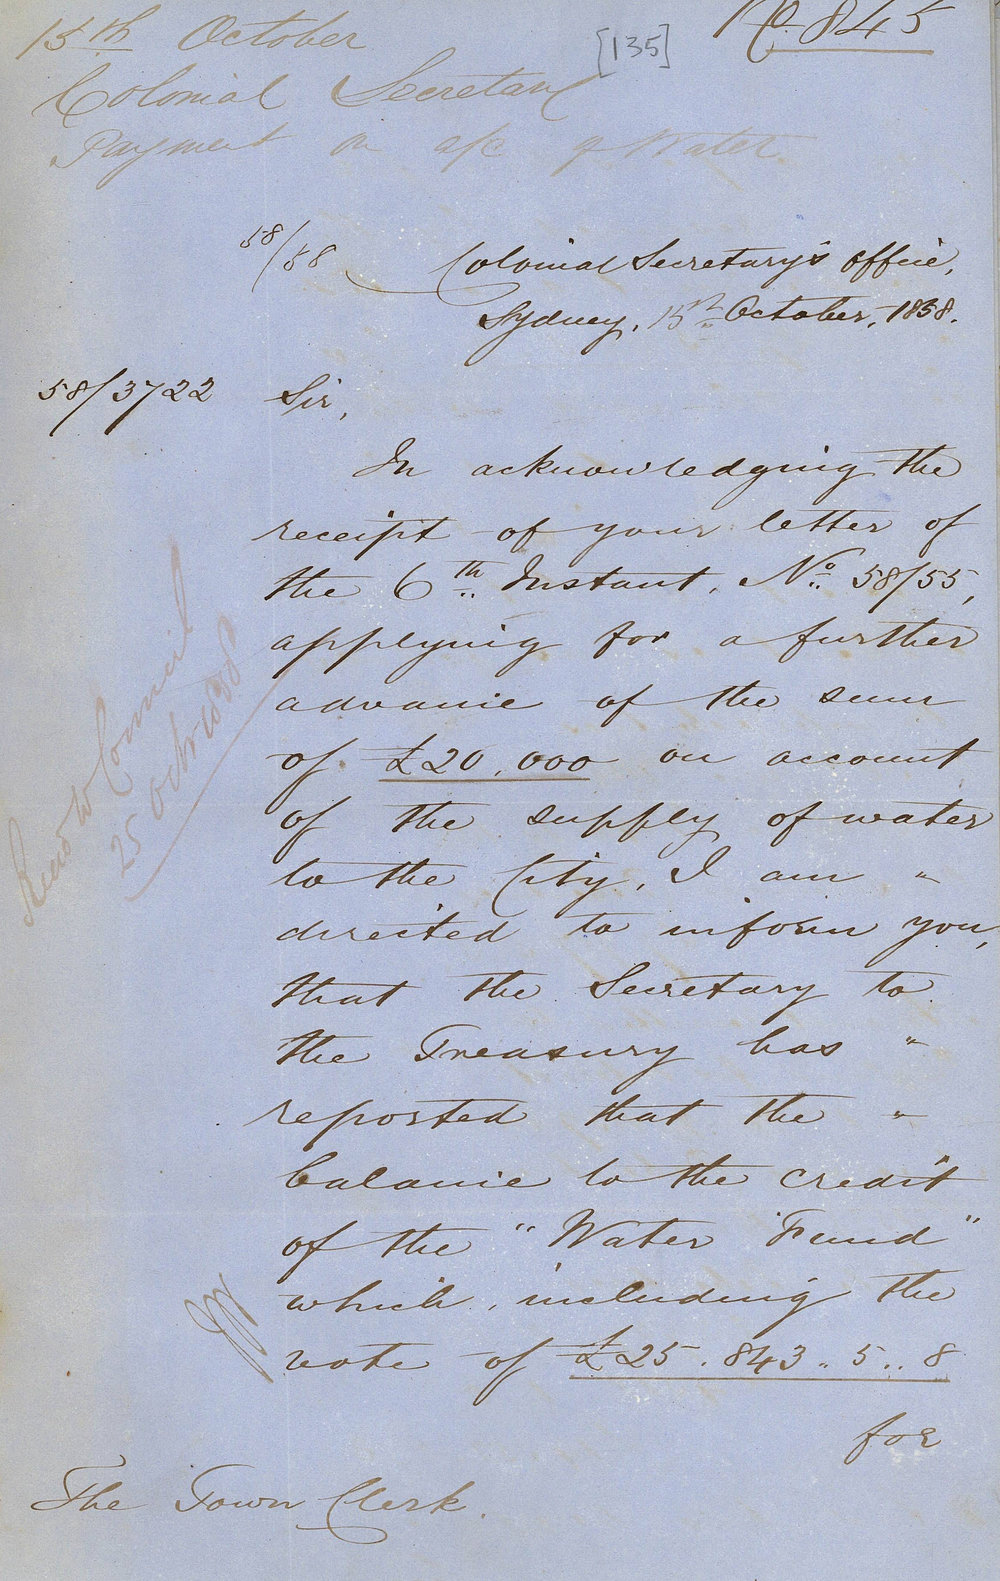 15th October
[135]
No. 845
Colonial Secretary
Payment on a/c of Water
58/58
Colonial Secretary's Office,
Sydney, 15th October, 1858.
58/3722
Sir,
In acknowledging the
receipt of your letter of
the 6th Instant, No. 58/55,
applying for a further
advance of the sum
of £20,000 on account
of the supply of water
to the City, I am "
directed to inform you,
that the Secretary to
the Treasury has "
reported that the "
balance to the credit
of the "Water Fund"
which, including the
vote of £25,843..5..8
for
Council
25 Octr 1858
The Town Clerk.